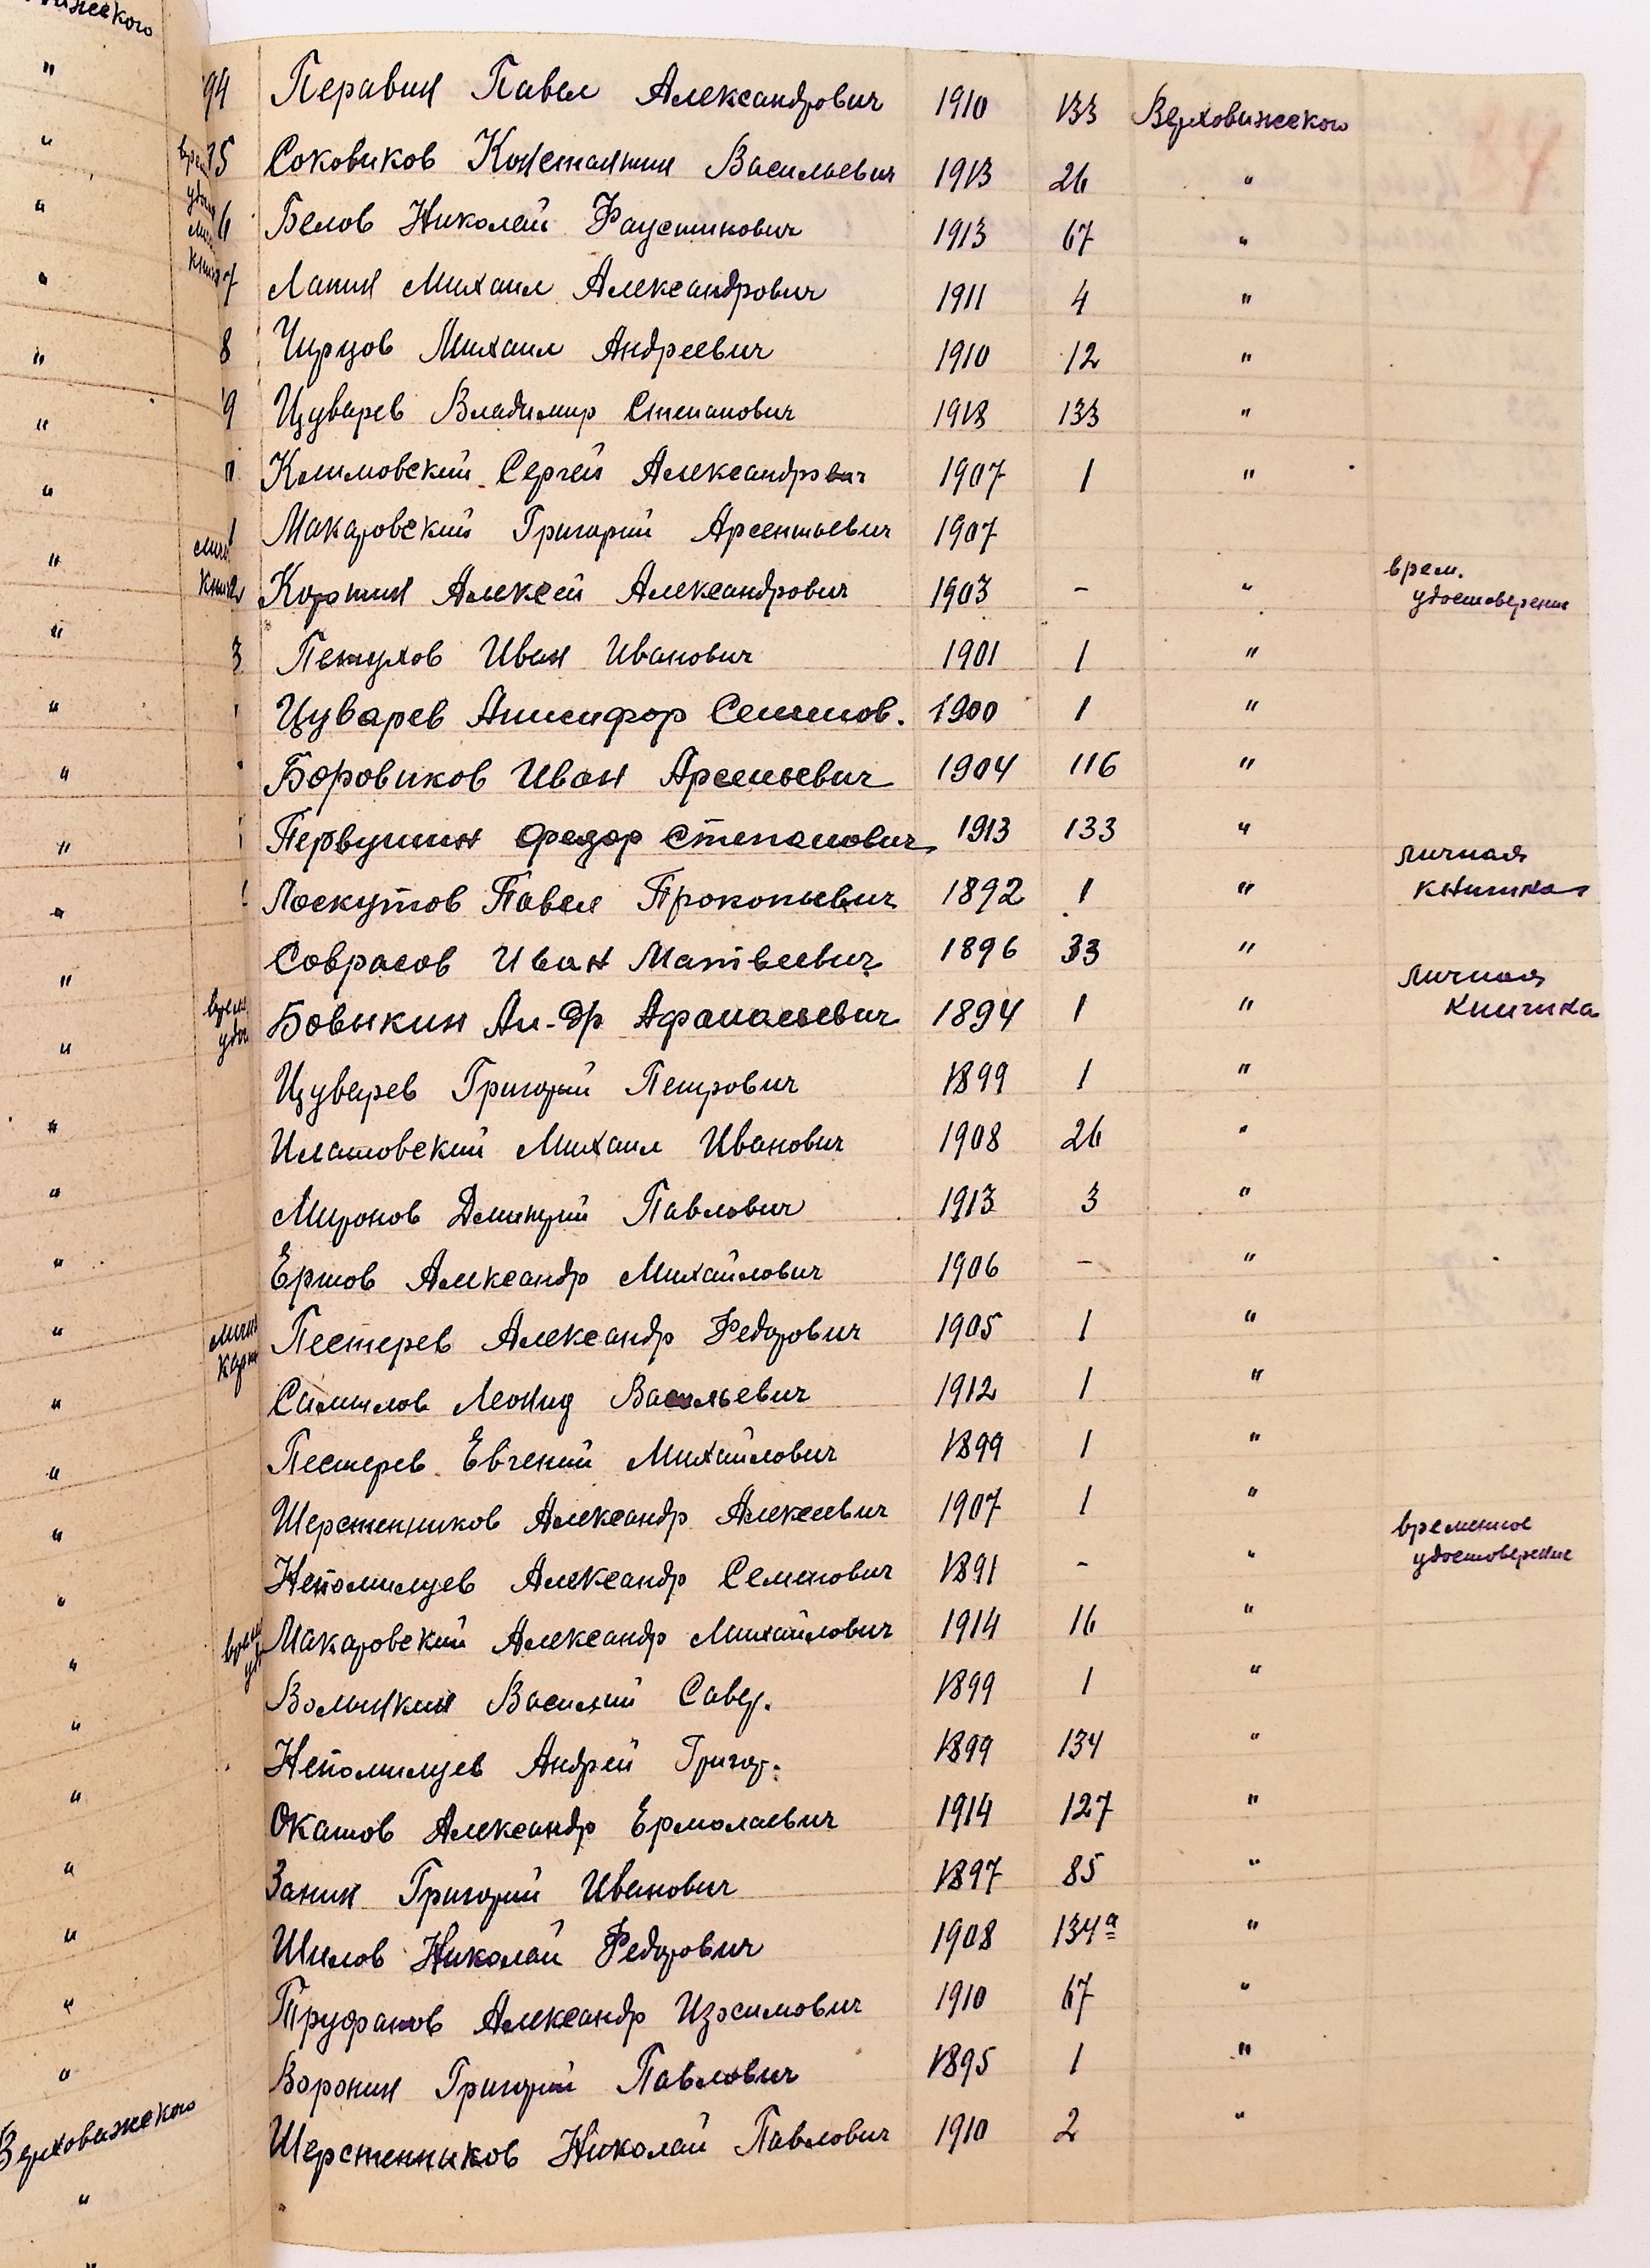 94 Перавин Павел Александрович 1910 133 Верховажского
95 Соковиков Константин Васильевич 1913 26 "
6 Белов Николай Фаустинович 1913 67 "
7 Лапин Михаил Александрович 1911 4 "
8 Чирцов Михаил Андреевич 1910 12 "
9 Цуварев Владимир Степанович 1918 133 "
Климовский Сергей Александрович 1907 1 "
1 Макаровский Григорий Арсентьевич 1907
2 Алексей Александрович 1903 - " врем.
удостоверение
3 Петухов Иван Иванович 1901 1 "
Цуварев Анисифор Семенов. 1900 1 "
Боровиков Иван Арсеньевич 1904 116 "
Первушин Федор Степанович 1913 133 "
Личная
Лоскутов Павел Прокопьевич 1892 1 " книжка
Соврасов Иван Матвеевич 1896 33 "
Личная
Бовыкин Ал-др Афанасьевич 1894 1 " книжка
Цуварев Григорий Петрович 1899 1 "
Илатовский Михаил Иванович 1908 26 "
Миронов Дмитрий Павлович 1913 3 "
Ершов Александр Михайлович 1906 - "
Пестерев Александр Федорович 1905 1 "
Самылов Леонид Васильевич 1912 1 "
Пестерев Евгений Михайлович 1899 1 "
Шерстенников Александр Алексеевич 1907 1 "
временное
Непомилуев Александр Семенович 1891 - " удостоверение
Макаровский Александр Михайлович 1914 16 "
Волынкин Василий Савер. 1899 1 "
Непомилуев Андрей Григор. 1899 134 "
Окатов Александр Ермолаевич 1914 127 "
Занин Григорий Иванович 1897 85 "
Шилов Николай Федорович 1908 134а "
Труфанов Александр Изосимович 1910 67 "
Воронин Григорий Павлович 1895 1 "
Шерстенников Николай Павлович 1910 2 "
Верховажского